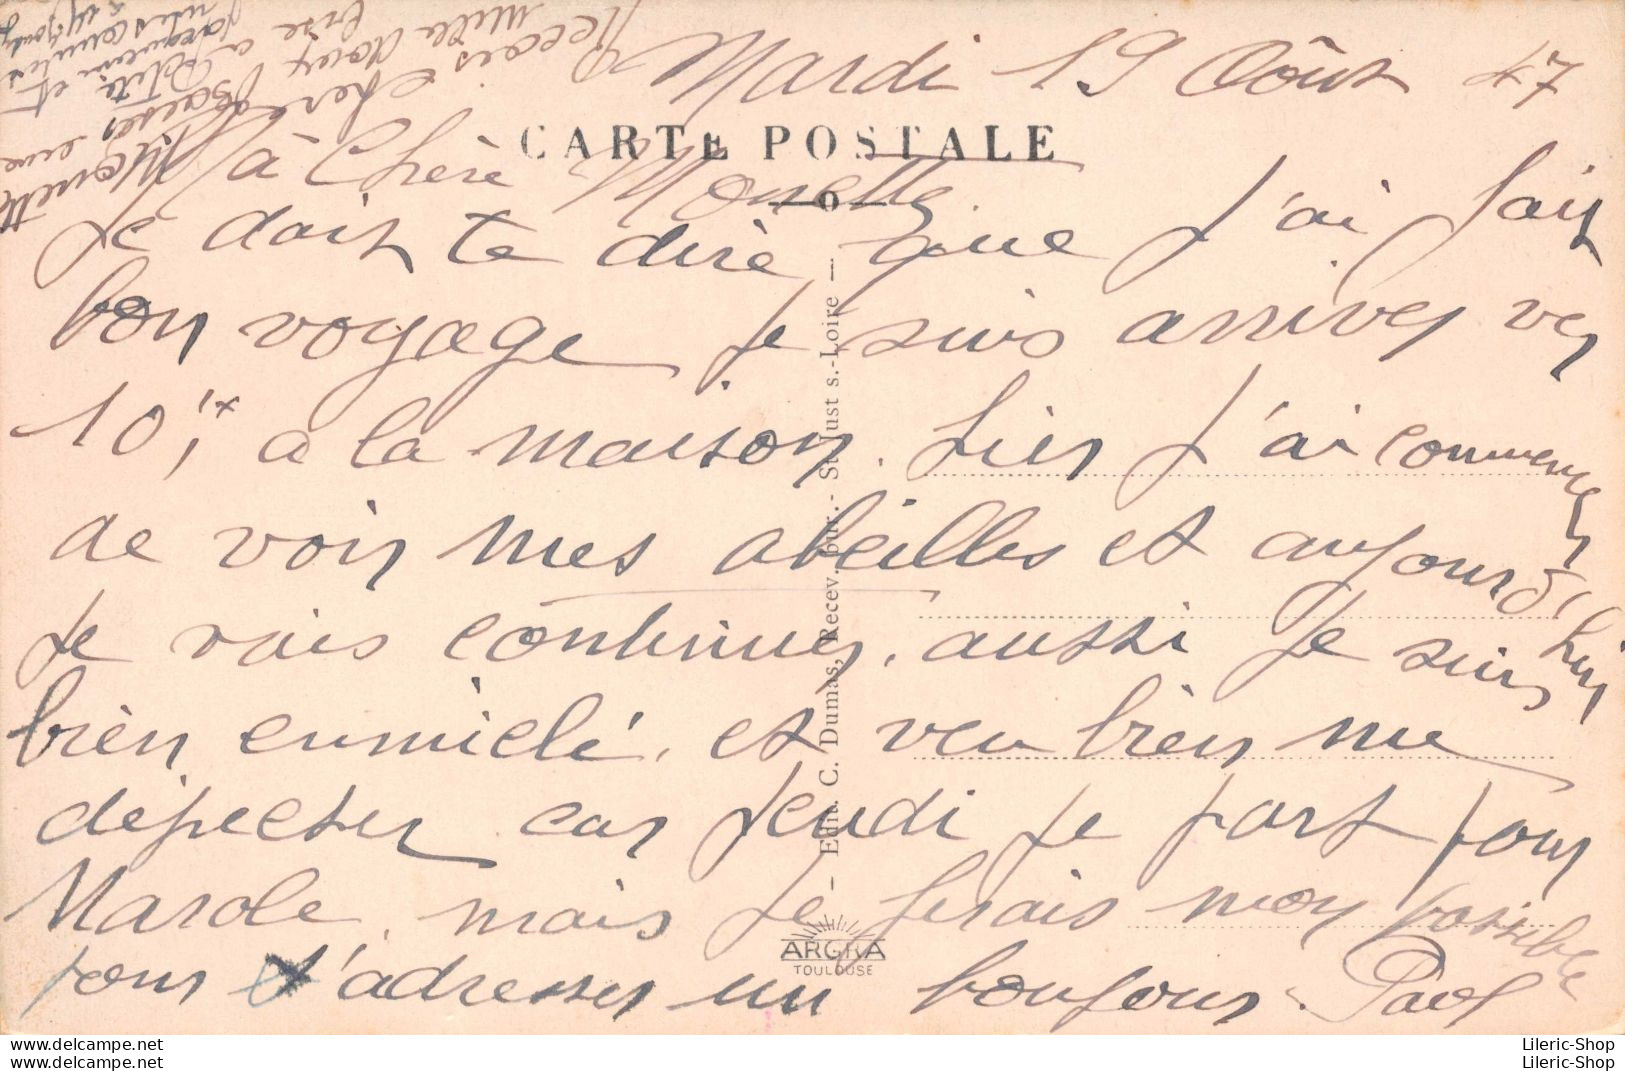 Mardi 19 Août 47
CARTE POSTALE
Ma Chère Monette
Je doit te dire que j'ai fait
bon voyage je suis arriver ver
10 a la maison. hier j'ai commencer
de voir mes abeilles et aujourd'hui
je vais continuer, aussi je suis
bien enmielé, et veu bien me
dépecher car Jeudi je part pour
Marole, mais je ferais mon possible
pour t'adresser un bonjour. Paul
Recois chere Monette
mille doux baiser
Edit. C. Dumas, Recev. bur. - St-Just s.-Loire
ARGRA
TOULOUSE
Lileric-Shop
Lileric-Shop
www.delcampe.net
www.delcampe.net